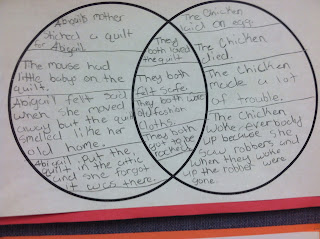 Abigail's mother
stiched a quilt
for Abigail.
The mouse had
little babys on the
quilt.
Abigail felt said
when she moved
away but the quilt
smelled like her
old home.
Abigail put the
quilt in the attic
and she forgot
it was there.
They
both loved
the quilt.
They both
felt safe.
They both wore
old foshon
cloth
They both
got to be
rocked
The Chicken
laid an egg.
The Chicken
died.
The Chicken
made a lot
of trouble.
The Chicken
woke everybody
up because she
saw robbers and
when they woke
up the robber were
gone.